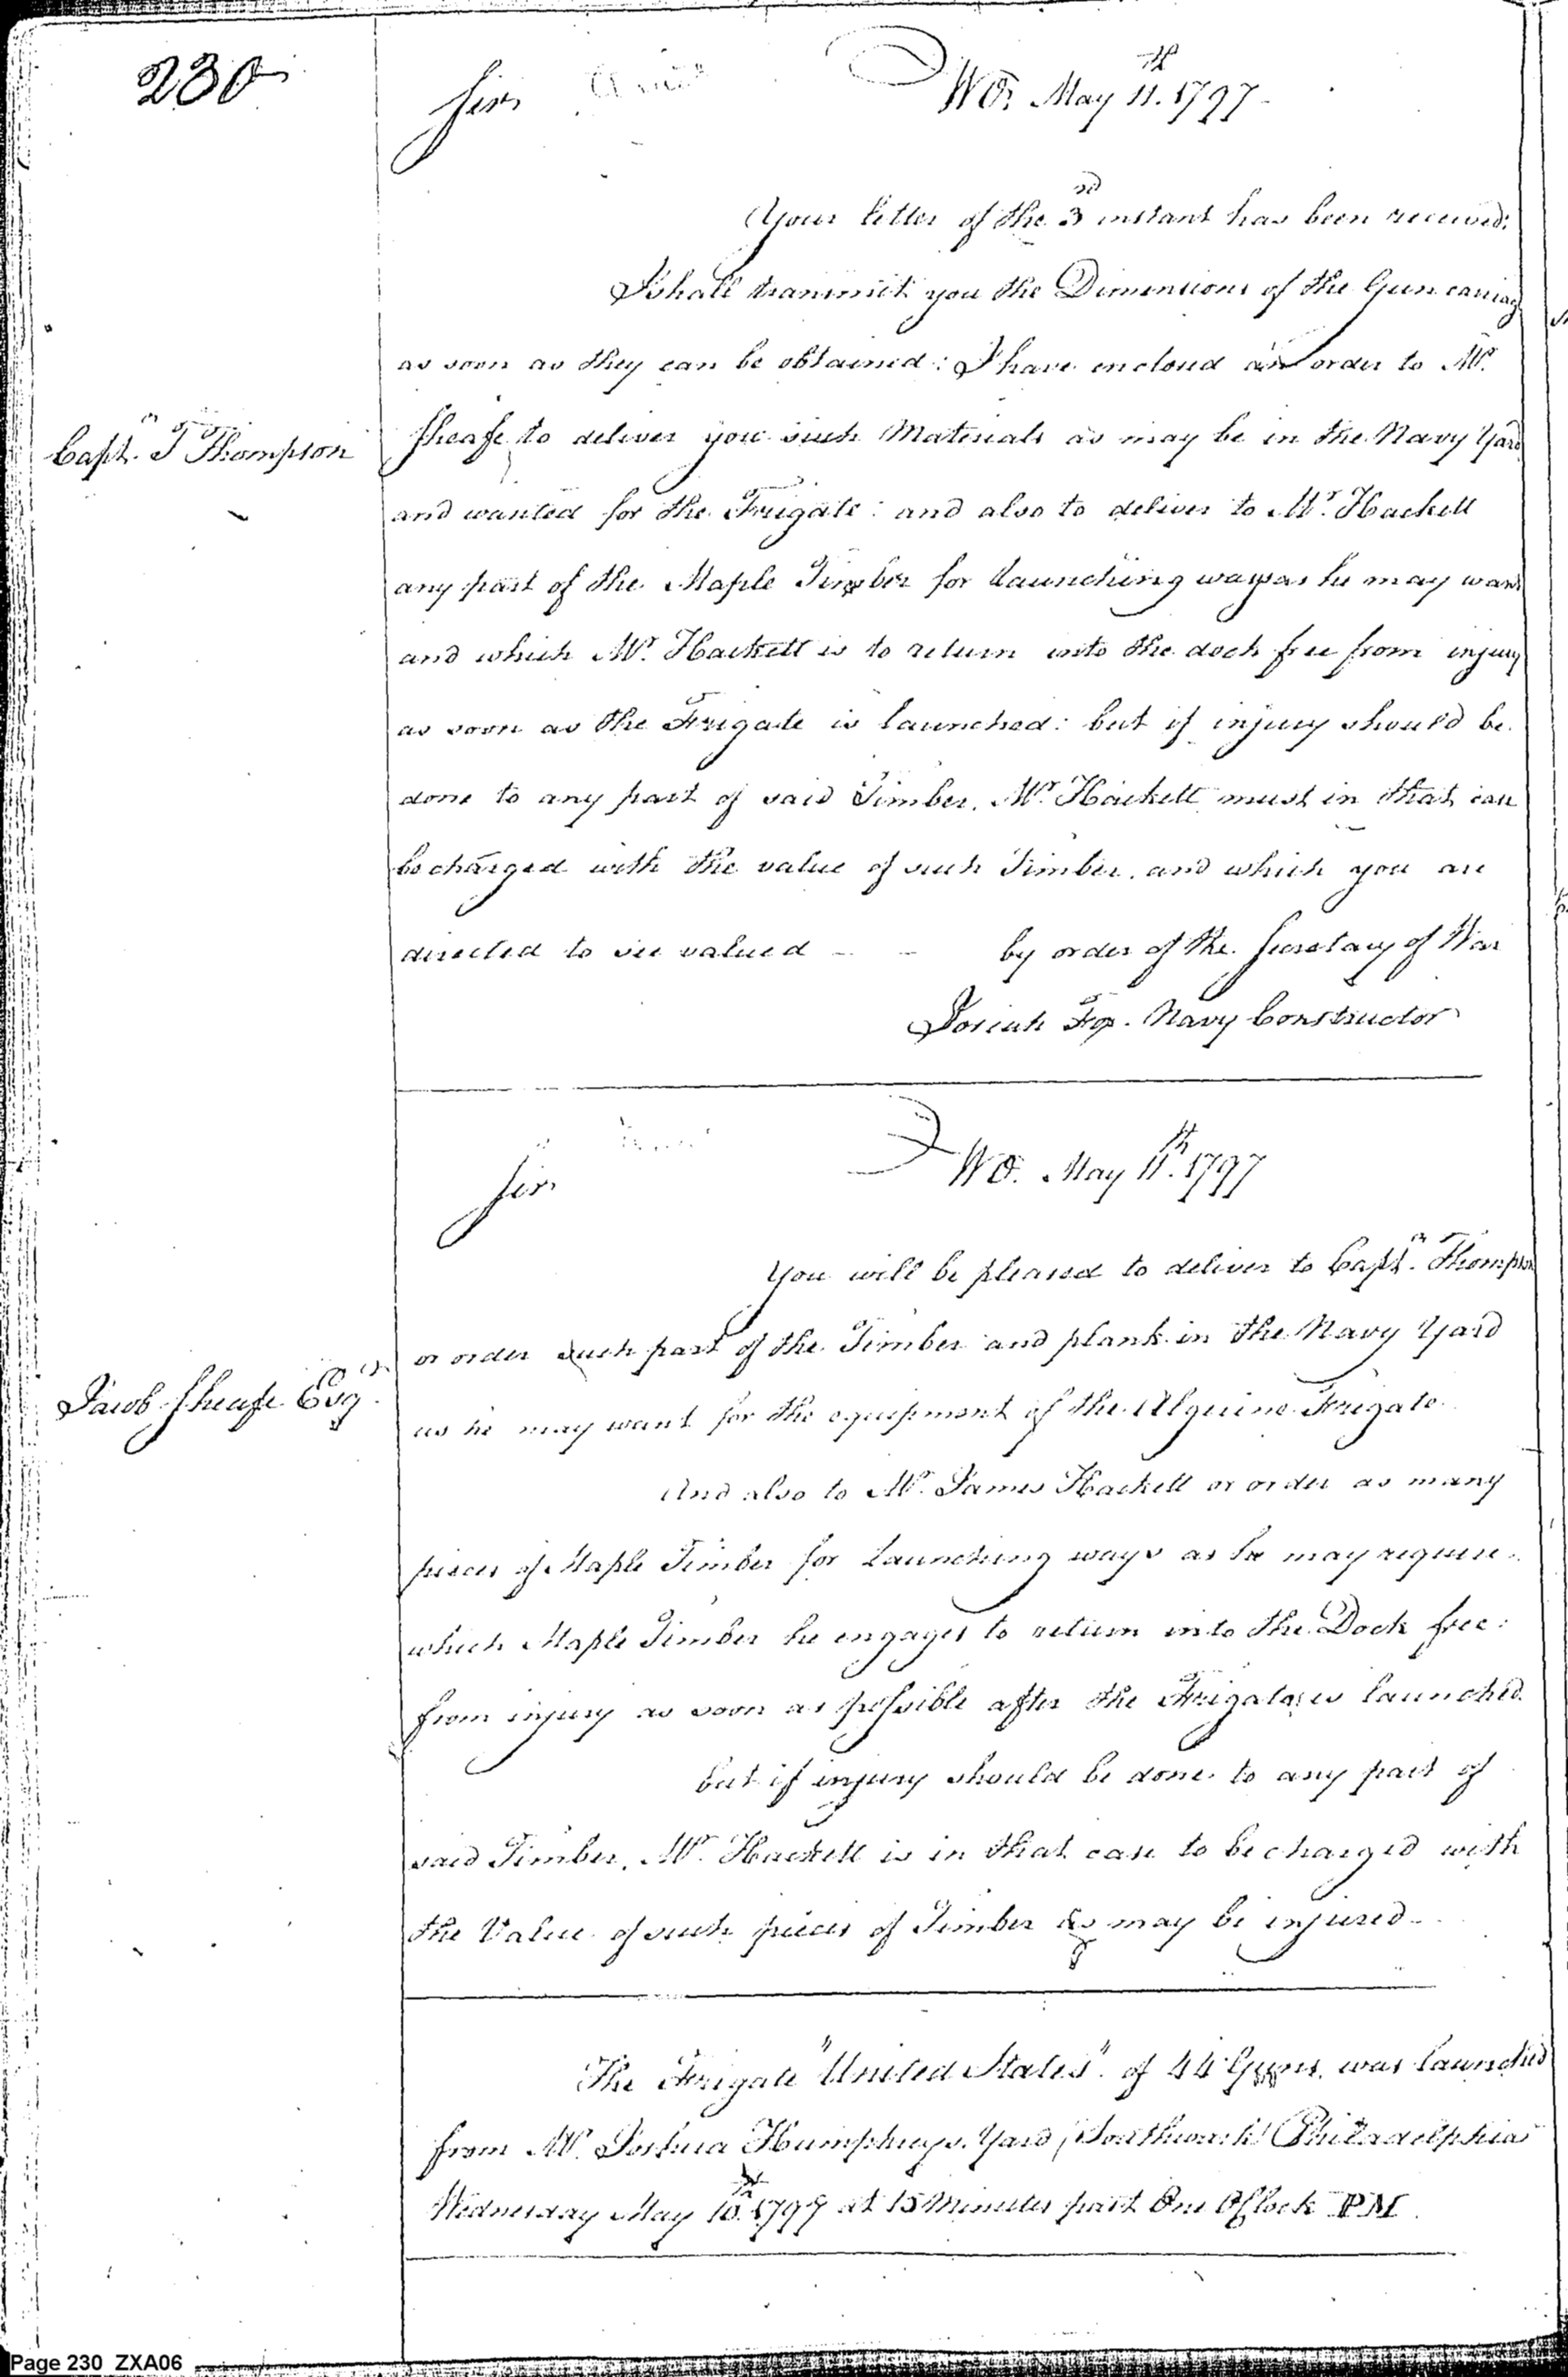 230
Sir, WO, May 11th. 1797
Your letter of the 3rd instant has been received:
I shall transmit you the Dimensions of the Gun carriag
as soon as they can be obtained: I have enclosed an order to Mr.
Captn. T Thompson
Sheafe to deliver you such Materials as may be in the Navy Yard
and wanted for the Frigate: and also to deliver to Mr. Hackett
any part of the Maple Timber for launching ways as he may want
and which Mr. Hackett is to return into the dock free from injury
as soon as the Frigate is launched: but if injury should be
done to any part of said Timber, Mr. Hackett must in that case
be charged with the value of such Timber, and which you are
directed to see valued — — by order of the Secretary of War
Josiah Fox. Navy Constructor
Sir, WO. May 11th. 1797
You will be pleased to deliver to Captn. Thompson
or order such part of the Timber and plank in the Navy Yard
Jacob Sheafe Esq.
as he may want for the equipment of the Algerine Frigate.
And also to Mr. James Hackett or order as many
pieces of Maple Timber for launching ways as he may require.
which Maple Timber he engages to return into the Dock free:
from injury as soon as possible after the Frigate is launched
but if injury should be done to any part of
said Timber, Mr. Hackett is in that case to be charged with
the Value of such pieces of Timber as may be injured.
The Frigate "United States". of 44 Guns, was launched
from Mr. Joshua Humphreys Yard, Southwark Philadelphia
Wednesday May 10th. 1797 at 15 Minutes past One OClock PM.
Page 230 ZXA06